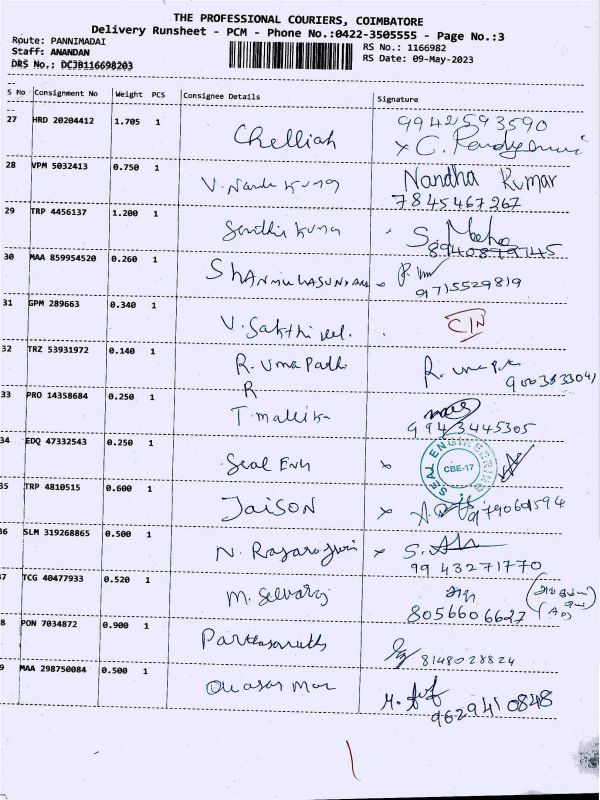 THE PROFESSIONAL COURIERS, COIMBATORE
Delivery Runsheet - PCM - Phone No.:0422-3505555 - Page No.:3
Route: PANNIMADAI
Staff: ANANDAN
DRS No.: DCJB116698203
RS No.: 1166982
RS Date: 09-May-2023
S No Consignment No Weight PCS Consignee Details Signature
27 HRD 20204412 1.705 1 Chelliah 9942593590
x C.
28 VPM 5032413 0.750 1 V. Nanda Kumar Nandha Kumar
7845467267
29 TRP 4456137 1.200 1 Senthil Kumar S.
30 MAA 859954520 0.260 1 9715529819
31 GPM 289663 0.340 1 V. Sakthi vel. C/N
32 TRZ 53931972 0.140 1 R. Umapathi R.
33 PRO 14358684 0.250 1 R
T. mallika
9943445305
34 EDQ 47332543 0.250 1 Seal Eng x SEAL ENGINEERING CBE-17
35 TRP 4810515 0.600 1 JAISON x
36 SLM 319268865 0.500 1 N. x S.
9943271770
37 TCG 40477933 0.520 1 M. Selvaraj
8056606627
38 PON 7034872 0.900 1 8148028824
39 MAA 298750084 0.500 1 M.
9629410848